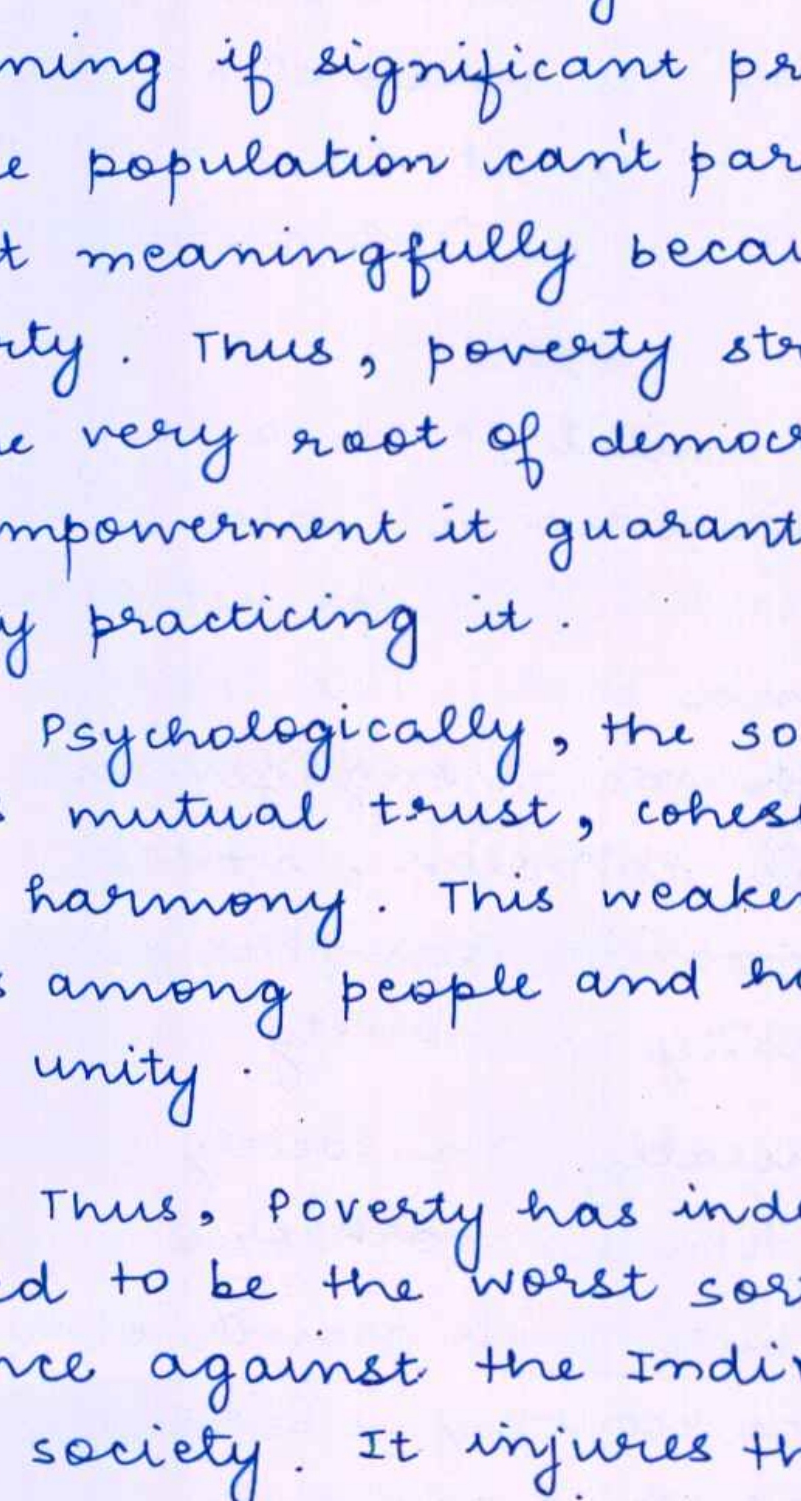 ning if significant pr
e population can't par
t meaningfully becau
rty. Thus, poverty str
e very root of democr
mpowerment it guarant
y practicing it.
Psychologically, the so
s mutual trust, cohes
harmony. This weaken
s among people and ha
unity.
Thus, Poverty has inde
ed to be the worst sort
nce against the Indiv
society. It injures th